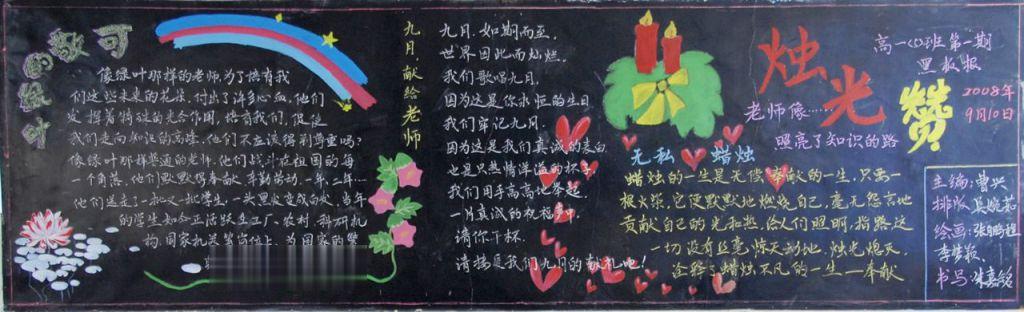 可敬的绿叶
像绿叶那样的老师,为了培育我
们这些未来的花朵,付出了许多心血,他们
发挥着特殊的光合作用,培育我们,促使
我们走向知识的高峰,他们不应该得到尊重吗?
像绿叶那样普通的老师,他们战斗在祖国的每
一个角落,他们默默得奉献,辛勤劳动,一年,二年…
他们送走了一批又一批学生,一头黑发变成白发,当年
的学生如今正活跃在工厂、农村、科研机
构、国家机关等岗位上,为国家的繁
九月献给老师
九月,如期而至,
世界因此而灿烂,
我们歌唱九月,
因为这是你永恒的生日
我们牢记九月,
因为这是我们真诚的表白
也是只热情洋溢的杯子
我们用手高高地举起,
一片真诚的祝福
请你干杯,
请接受我们九月的献礼吧!
烛光赞
老师像……
照亮了知识的路
无私 蜡烛
蜡烛的一生是无偿奉献的一生,只需一
根火柴,它便默默地燃烧自己,毫无怨言地
贡献自己的光和热,给人们照明,指路这
一切没有丝毫惊天动地,烛光熄灭,
诠释了蜡烛不凡的一生——奉献
高一(2)班第一期
黑板报
2008年
9月10日
主编:曹兴
排版
绘画:
李梦
书写:朱嘉铭